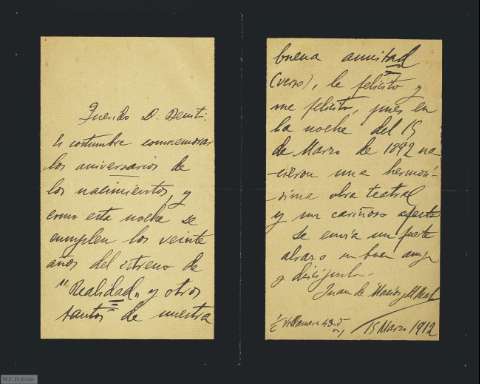 Querido D. Benito:
Es costumbre conmemorar
los aniversarios de
los nacimientos, y
como esta noche se
cumplen los veinte
años del estreno de
"Realidad" y otros
tantos de nuestra
buena amistad
(verso), le felicito y
me felicito, pues en
la noche del 15
de Marzo de 1892 na
cieron una hermosí
sima obra teatral
y un cariñoso afecto
Le envia un fuerte
abrazo su buen amigo
Juan de
15 Marzo 1912